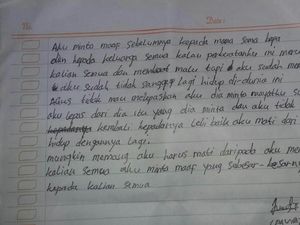 No:
Date:
Aku minta maaf sebelumnya kepada mama sama bapa
dan kepada keluarga semua kalau perbuatanku ini
kalian semua dan membuat malu tapi aku sudah
aku sudah tidak sanggup lagi hidup di dunia ini
tidak mau melepaskan aku dia minta
aku lepas dari dia itu yang dia minta dan aku tidak
kembali kepadanya lebih baik aku mati dari
hidup dengannya lagi.
mungkin memang aku harus mati daripada aku
kalian semua aku minta maaf yang sebesar-besarnya
kepada kalian semua